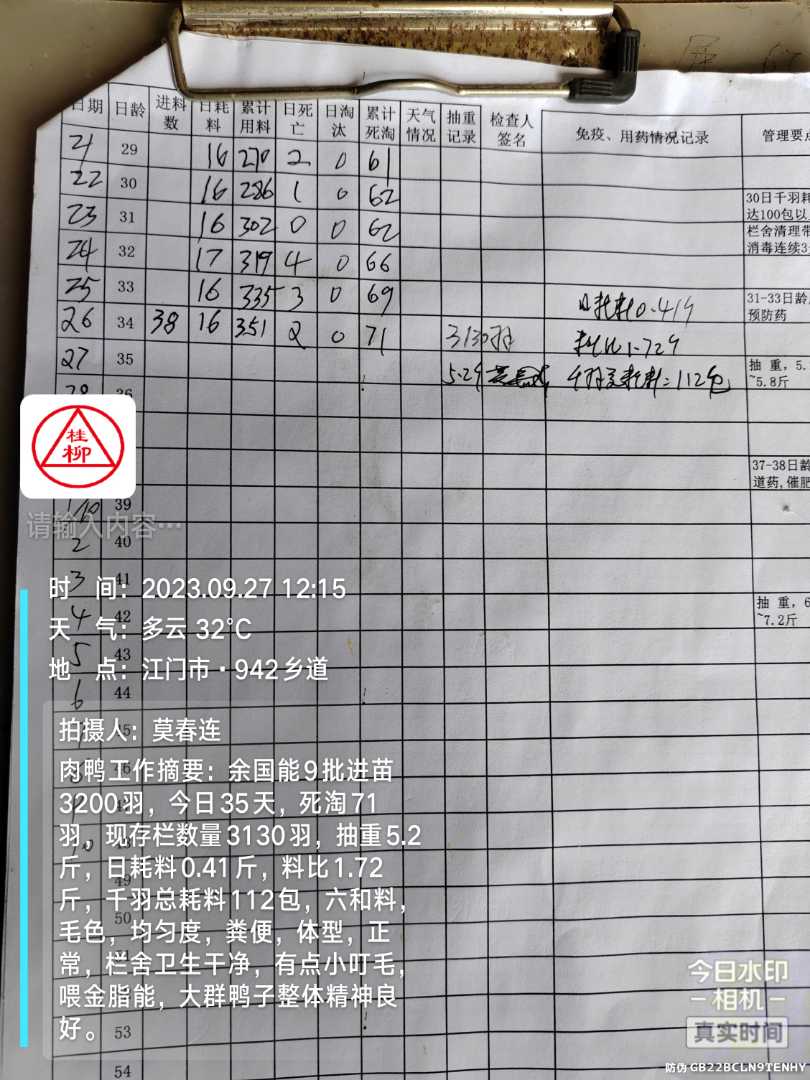 日期 日龄 进料数 日耗料 累计用料 日死亡 日淘汰 累计死淘 天气情况 抽重记录 检查人签名 免疫、用药情况记录 管理要点
21 29 16 270 2 0 61
22 30 16 286 1 0 62
30日千羽耗
达100包以
23 31 16 302 0 0 62
栏舍清理带
消毒连续3
24 32 17 319 4 0 66
25 33 16 335 3 0 69 日耗料0.41斤
31-33日龄
预防药
26 34 38 16 351 2 0 71 3130羽 料比1.72斤
27 35 5.2斤 千羽总耗料=112包
抽 重, 5.
~5.8斤
28 36
37-38日龄
道药,催肥
桂
柳
39
请输入内容…
2 40
3 41
4 42
抽 重, 6
~7.2斤
5 43
6 44
时 间：2023.09.27 12:15
天 气：多云 32℃
地 点：江门市·942乡道
拍摄人：莫春连
肉鸭工作摘要：余国能9批进苗
3200羽，今日35天，死淘71
羽，现存栏数量3130羽，抽重5.2
斤，日耗料0.41斤，料比1.72
斤，千羽总耗料112包，六和料，
毛色，均匀度，粪便，体型，正
常，栏舍卫生干净，有点小叮毛，
喂金脂能，大群鸭子整体精神良
好。
49
50
53
54
今日水印
相机
真实时间
防伪 GB22BCLN9TENHY